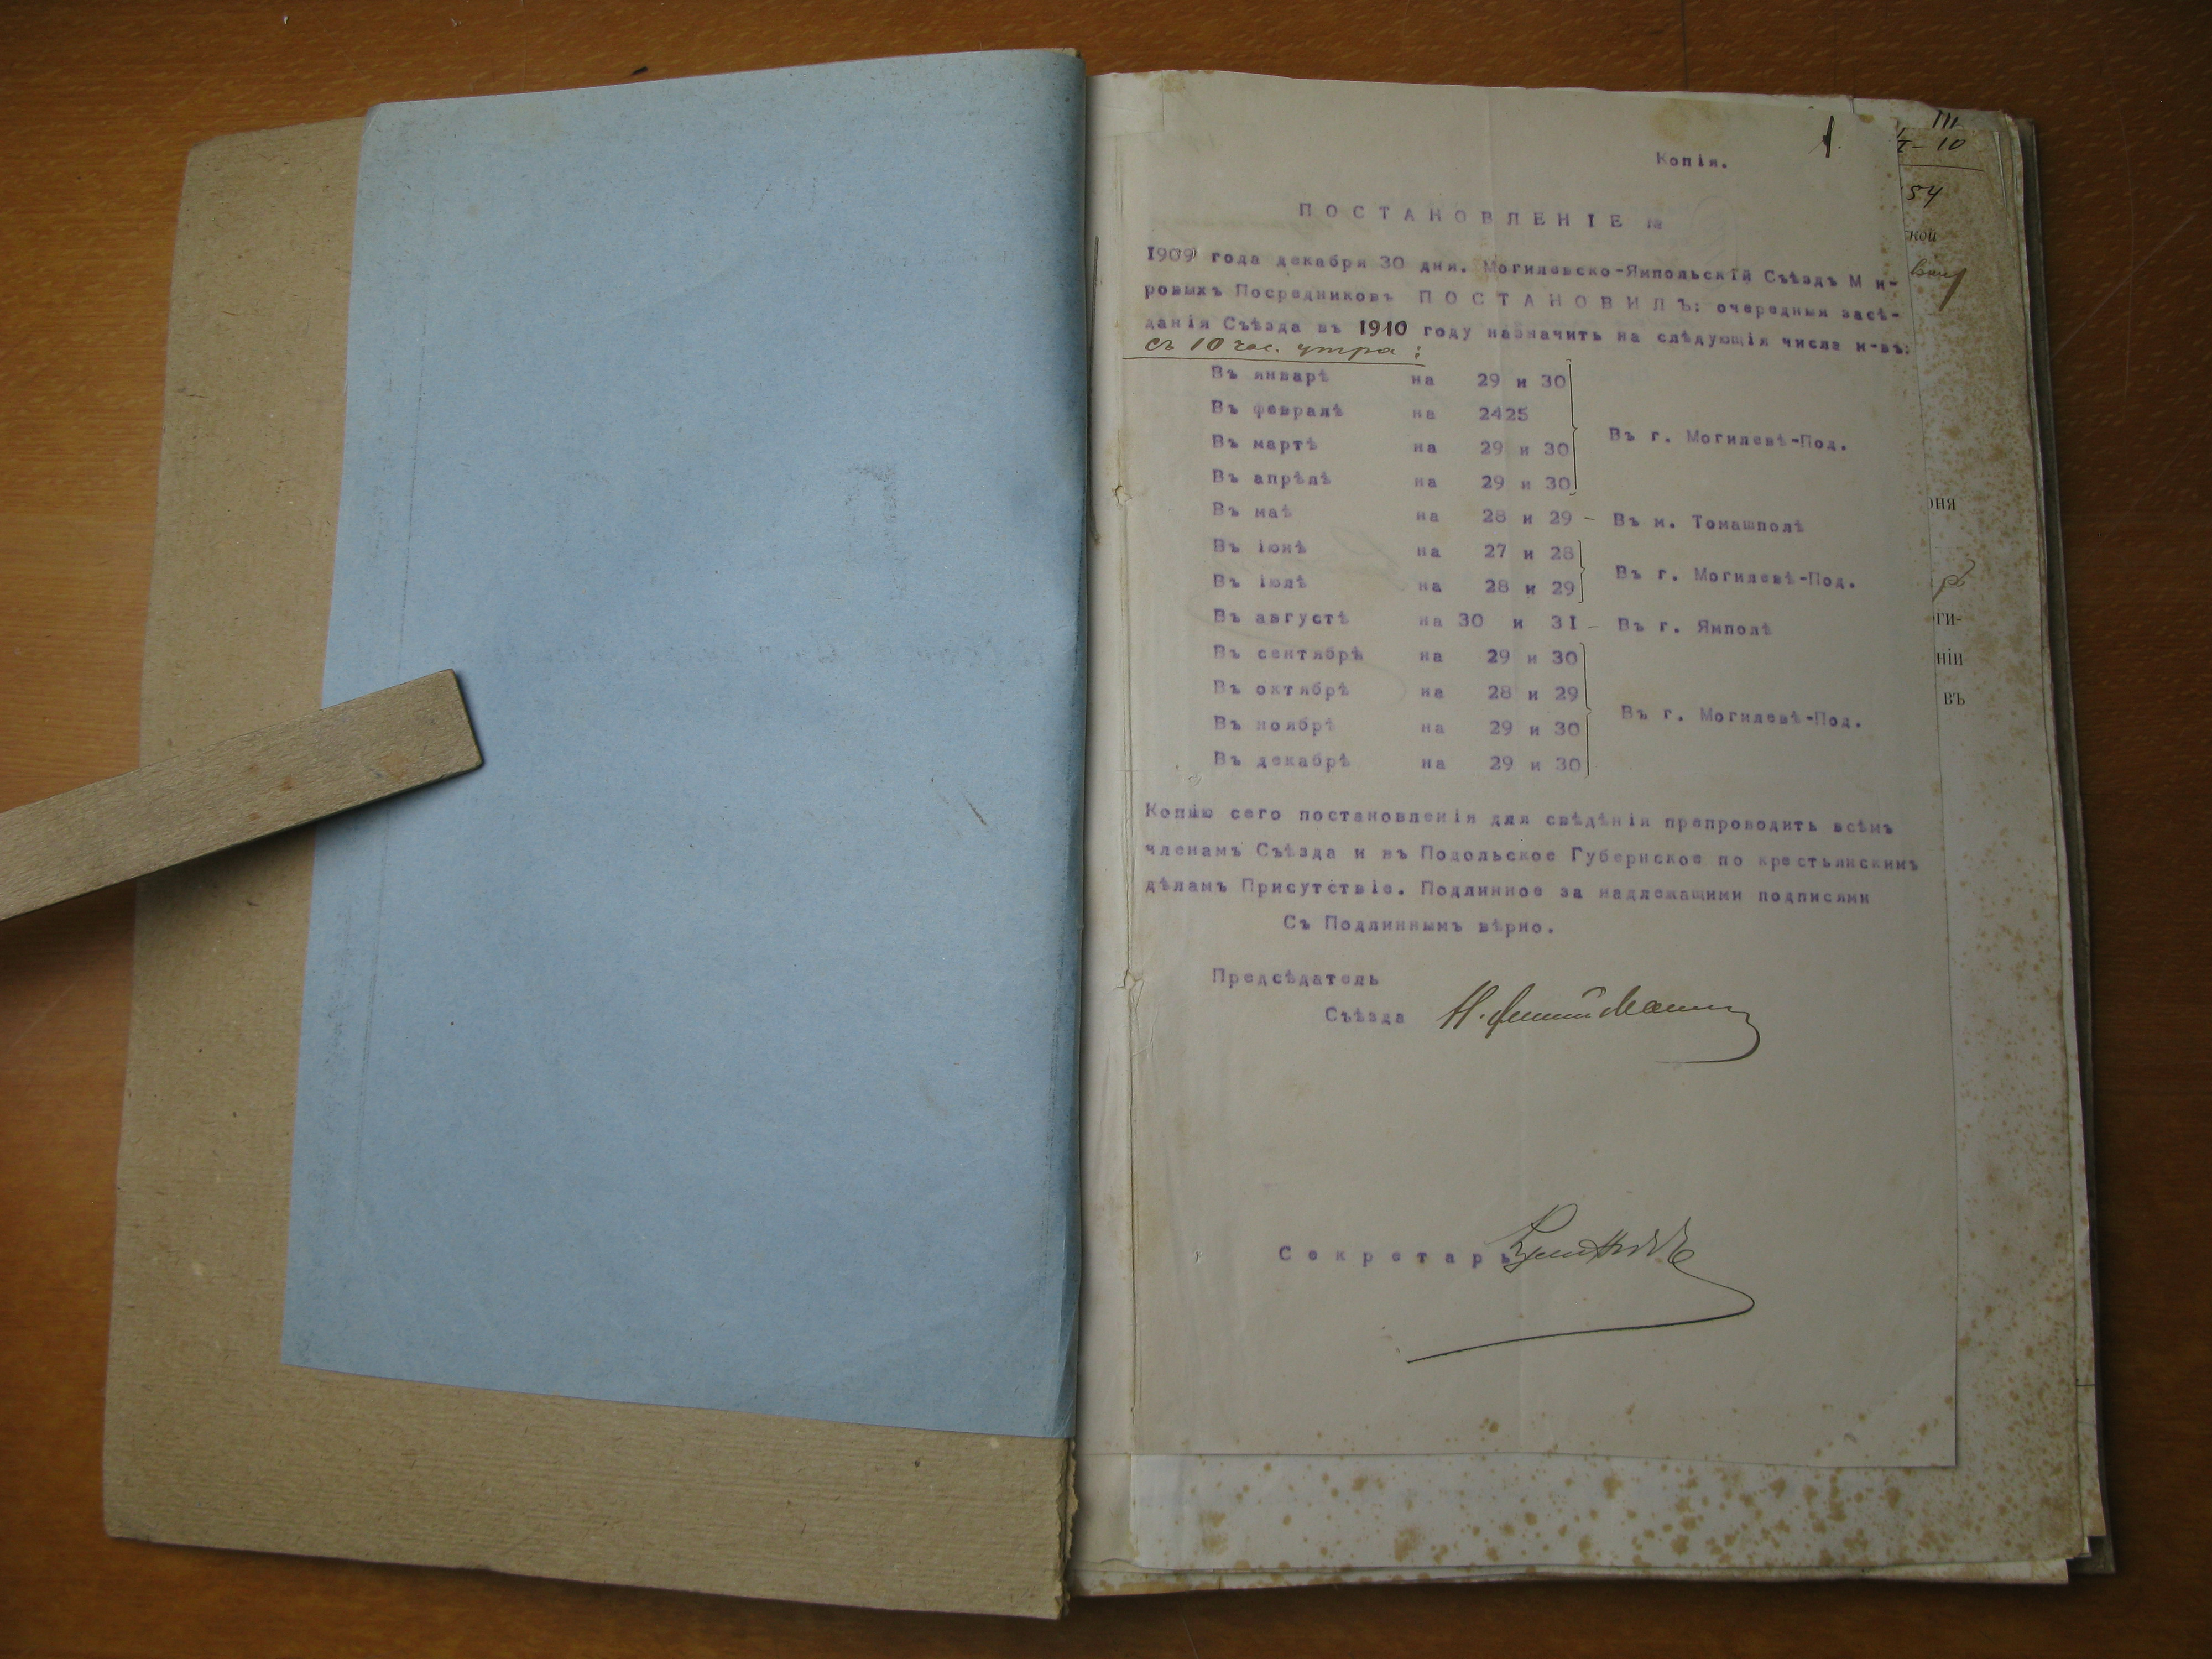 1.
Копія.
ПОСТАНОВЛЕНІЕ №
1909 года декабря 30 дня. Могилевско-Ямпольскій Съѣздъ Ми-
ровыхъ Посредниковъ ПОСТАНОВИЛЪ: очередныя засѣ-
данія Съѣзда въ 1910 году назначить на слѣдующія числа м-въ:
съ 10 час. утра:
Въ январѣ на 29 и 30
Въ февралѣ на 2425
Въ мартѣ на 29 и 30 Въ г. Могилевѣ-Под.
Въ апрѣлѣ на 29 и 30
Въ маѣ на 28 и 29 - Въ м. Томашполѣ
Въ іюнѣ на 27 и 28
Въ іюлѣ на 28 и 29 Въ г. Могилевѣ-Под.
Въ августѣ на 30 и 31 - Въ г. Ямполѣ
Въ сентябрѣ на 29 и 30
Въ октябрѣ на 28 и 29
Въ ноябрѣ на 29 и 30 Въ г. Могилевѣ-Под.
Въ декабрѣ на 29 и 30
Копію сего постановленія для свѣдѣнія препроводить всѣмъ
членамъ Съѣзда и въ Подольское Губернское по крестьянскимъ
дѣламъ Присутствіе. Подлинное за надлежащими подписями
Съ Подлиннымъ вѣрно.
Предсѣдатель
Съѣзда
Секретарь
III
10
54
ской
оня
ги-
ніи
въ